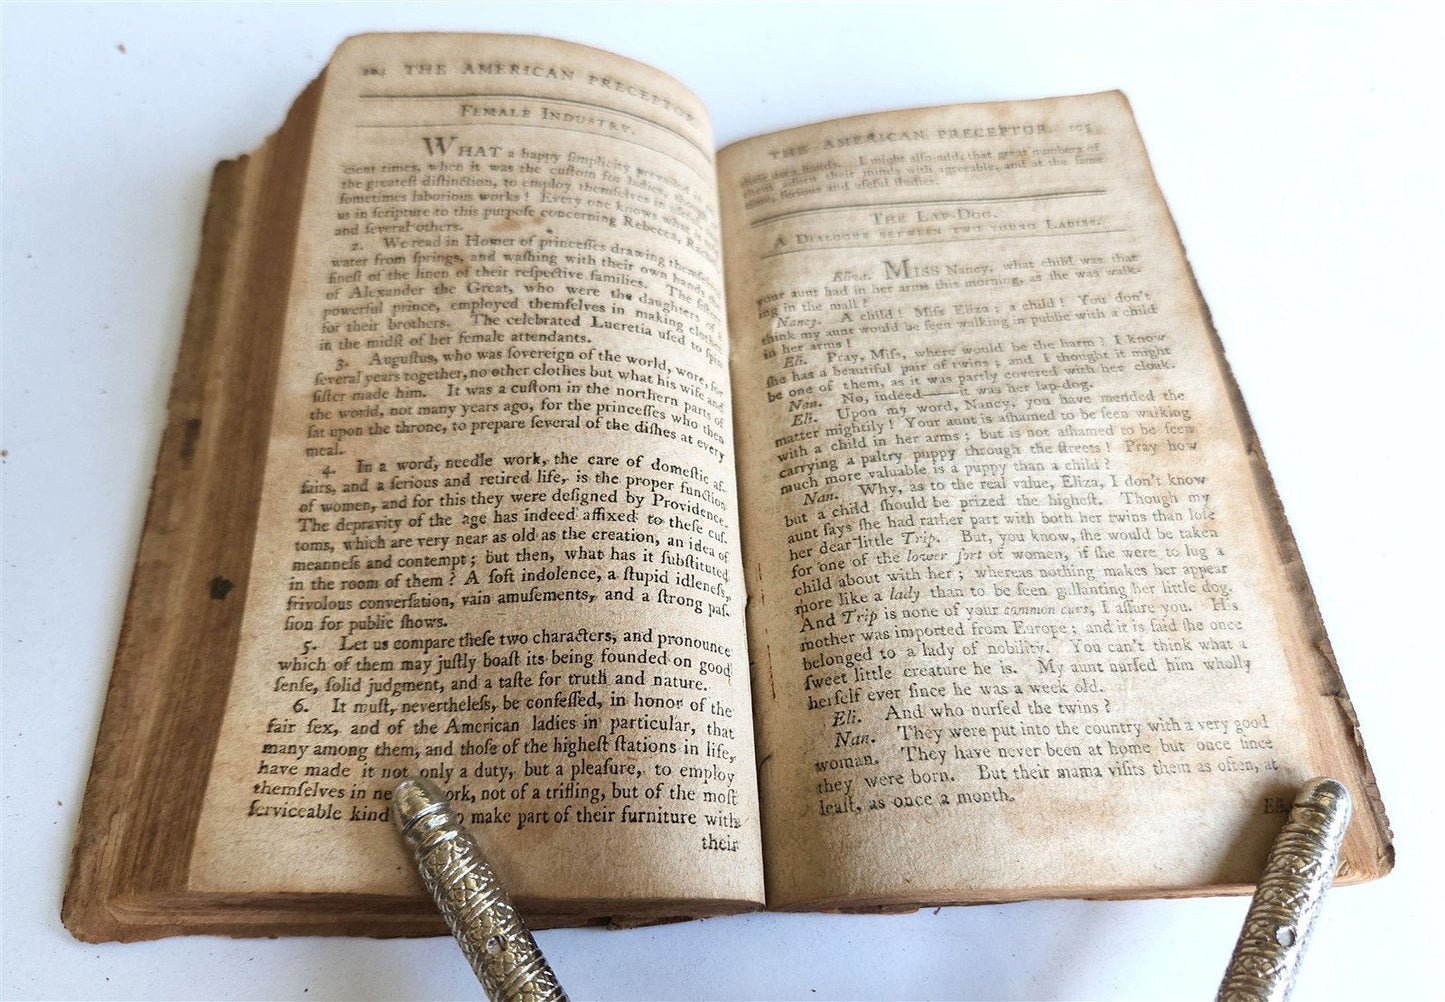 104 THE AMERICAN PRECEPTOR.
FEMALE INDUSTRY.
WHAT a happy ſimplicity prevailed
cient times, when it was the cuſtom for ladies, though
the greateſt diſtinction, to employ themſelves in uſeful,
ſometimes laborious works! Every one knows what is
us in ſcripture to this purpoſe concerning Rebecca, Rachel,
and ſeveral others.
2. We read in Homer of princeſſes drawing themſelves
water from ſprings, and waſhing with their own hands the
fineſt of the linen of their reſpective families. The ſiſters
of Alexander the Great, who were the daughters of a
powerful prince, employed themſelves in making clothes
for their brothers. The celebrated Lucretia uſed to ſpin
in the midſt of her female attendants.
3. Auguſtus, who was ſovereign of the world, wore, for
ſeveral years together, no other clothes but what his wife and
ſiſter made him. It was a cuſtom in the northern parts of
the world, not many years ago, for the princeſſes who then
ſat upon the throne, to prepare ſeveral of the diſhes at every
meal.
4. In a word, needle work, the care of domeſtic af-
fairs, and a ſerious and retired life, is the proper function
of women, and for this they were deſigned by Providence.
The depravity of the age has indeed affixed to theſe cuſ-
toms, which are very near as old as the creation, an idea of
meanneſs and contempt; but then, what has it ſubſtituted
in the room of them? A ſoft indolence, a ſtupid idleneſs,
frivolous converſation, vain amuſements, and a ſtrong paſ-
ſion for public ſhows.
5. Let us compare theſe two characters, and pronounce
which of them may juſtly boaſt its being founded on good
ſenſe, ſolid judgment, and a taſte for truth and nature.
6. It muſt, nevertheleſs, be confeſſed, in honor of the
fair ſex, and of the American ladies in particular, that
many among them, and thoſe of the higheſt ſtations in life,
have made it not only a duty, but a pleaſure, to employ
themſelves in ne ork, not of a trifling, but of the moſt
ſerviceable kind make part of their furniture with
their
THE AMERICAN PRECEPTOR. 105
own hands. I might alſo add, that great numbers of
them adorn their minds with agreeable, and at the ſame
time, ſerious and uſeful ſtudies.
THE LAP-DOG.
A DIALOGUE BETWEEN TWO YOUNG LADIES.
Eliza. MISS Nancy, what child was that
your aunt had in her arms this morning, as ſhe was walk-
ing in the mall?
Nancy. A child! Miſs Eliza; a child! You don't
think my aunt would be ſeen walking in public with a child
in her arms!
Eli. Pray, Miſs, where would be the harm? I know
ſhe has a beautiful pair of twins; and I thought it might
be one of them, as it was partly covered with her cloak.
Nan. No, indeed——it was her lap-dog.
Eli. Upon my word, Nancy, you have mended the
matter mightily! Your aunt is aſhamed to be ſeen walking
with a child in her arms; but is not aſhamed to be ſeen
carrying a paltry puppy through the ſtreets! Pray how
much more valuable is a puppy than a child?
Nan. Why, as to the real value, Eliza, I don't know
but a child ſhould be prized the higheſt. Though my
aunt ſays ſhe had rather part with both her twins than loſe
her dear little Trip. But, you know, ſhe would be taken
for one of the lower ſort of women, if ſhe were to lug a
child about with her; whereas nothing makes her appear
more like a lady than to be ſeen gallanting her little dog.
And Trip is none of your common curs, I aſſure you. His
mother was imported from Europe; and it is ſaid ſhe once
belonged to a lady of nobility. You can't think what a
ſweet little creature he is. My aunt nurſed him wholly
herſelf ever ſince he was a week old.
Eli. And who nurſed the twins?
Nan. They were put into the country with a very good
woman. They have never been at home but once ſince
they were born. But their mama viſits them as often, at
leaſt, as once a month.